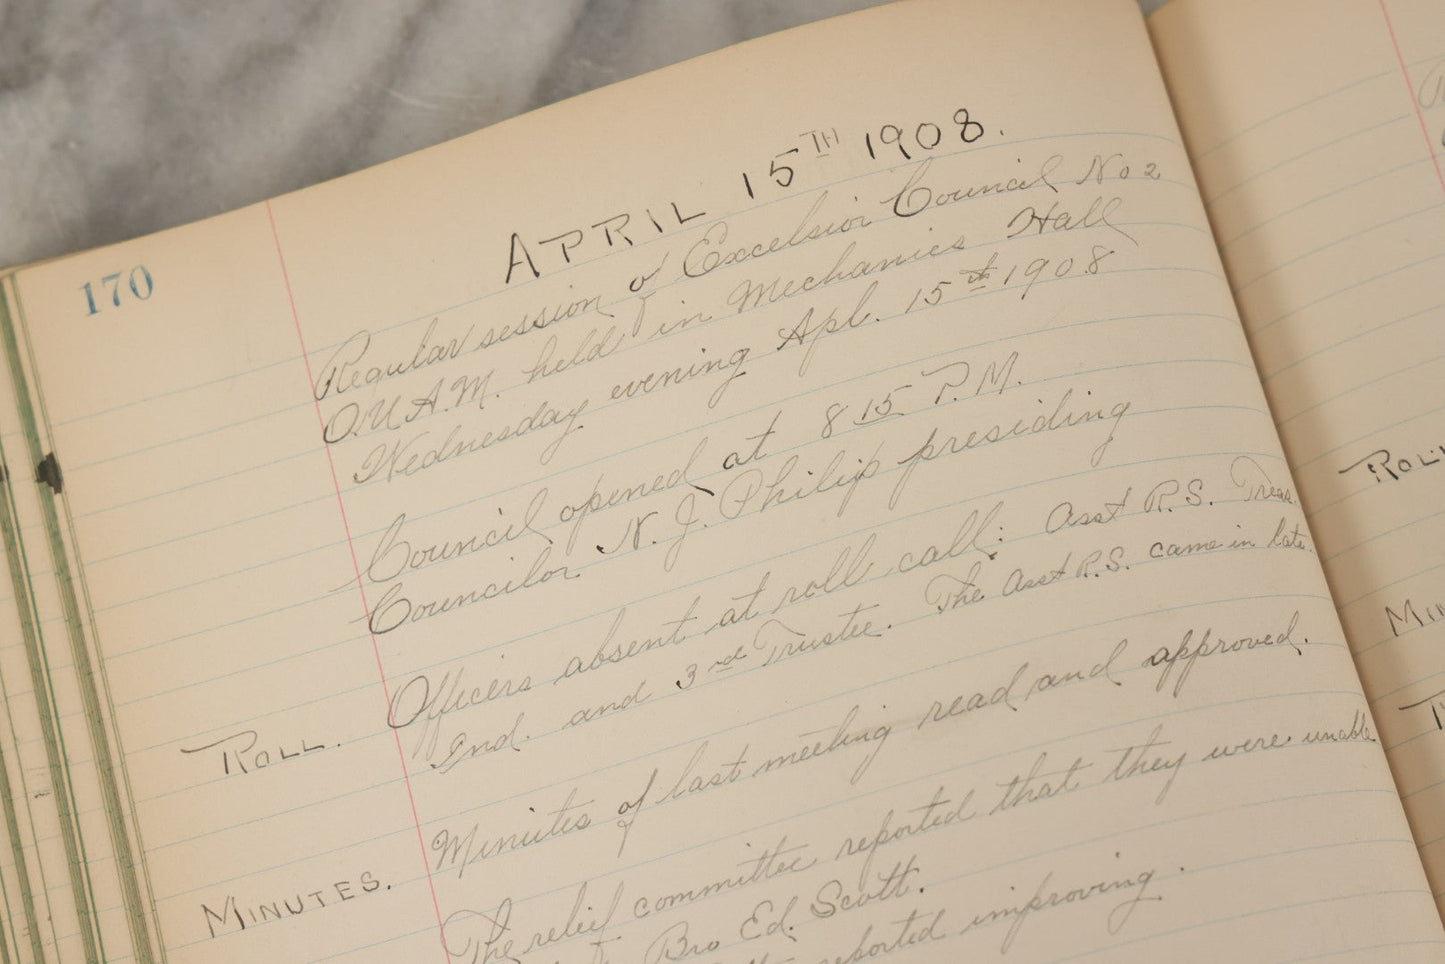 170
APRIL 15TH 1908.
Regular session of Excelsior Council No 2
O.U.A.M. held in Mechanics Hall
Wednesday evening Apl. 15th 1908
Council opened at 8 15 P.M.
Councilor N. J. Philip presiding
ROLL. Officers absent at roll call: Asst R.S. Treas.
Ind. and 3rd Trustee. The Asst R.S. came in late.
MINUTES. Minutes of last meeting read and approved.
The relief committee reported that they were unable
Bro Ed. Scott.
reported improving.
ROLL
MIN